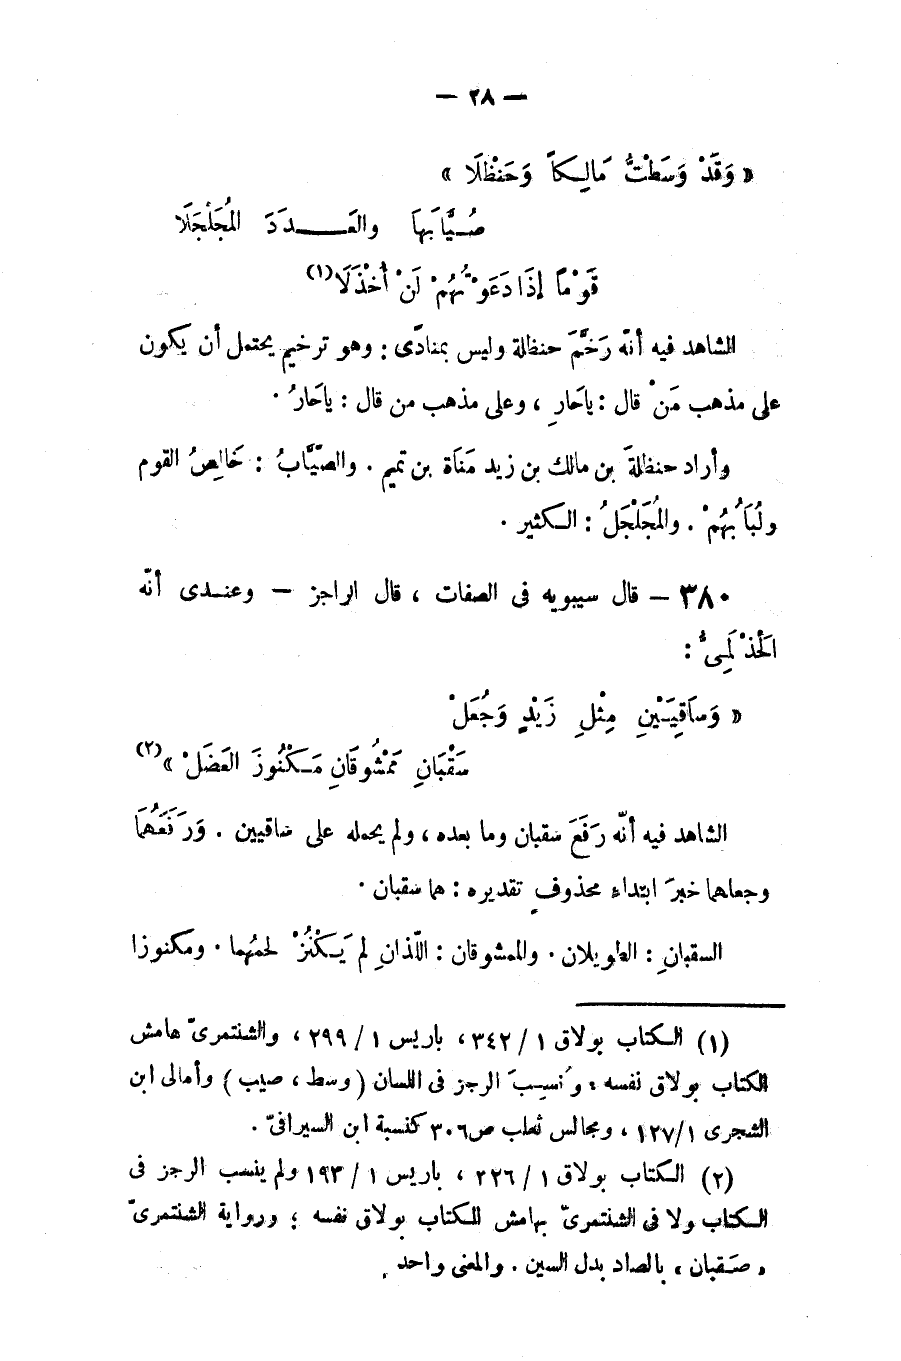 — ٢٨ —
« وَقَدْ وَسَطْتُ مَالِكاً وَحَنْظَلَا »
صُـيَّابَهَا والعَـــدَدَ المُجَلْجَلَا
قَوْماً إذَا دَعَوْتُهُمْ لَنْ أُخْذَلَا(١)
الشاهد فيه أنّه رَخَّمَ حنظلة وليس بمنادًى : وهو ترخيم يحتمل أن يكون
على مذهب مَنْ قال : ياحَارِ ، وعلى مذهب من قال : ياحَارُ .
وأراد حنظلةَ بن مالك بن زيد مَنَاة بن تميم . والصُّيَّابُ : خَالِصُ القوم
ولُبَابُهُمْ . والمُجَلْجَلُ : الـكثير .
٣٨٠ — قال سيبويه فى الصفات ، قال الراجز — وعنـدى أنّه
الحَذْلَمِىُّ :
« وَسَاقِيَيْنِ مِثْلِ زَيْدٍ وَجُعَلْ
سَقْبَانِ مَمْشُوقَانِ مَـكْنُوزَا العَضَلْ »(٢)
الشاهد فيه أنّه رَفَعَ سقبان وما بعده ، ولم يحمله على ساقيين . وَرَفَعَهُمَا
وجعلهما خبرَ ابتداء محذوفٍ تقديره : هما سقبان .
السقبانِ : الطويلان . والممشوقان : اللّذانِ لم يَـكْنُزْ لحمُهما . ومكنوزا
(١) الـكتاب بولاق ١ / ٣٤٢ ، باريس ١ / ٢٩٩ ، والشنتمرىّ هامش
الكتاب بولاق نفسه ، وُنسِـبَ الرجز فى اللسان ( وسط ، صيب ) وأمالى ابن
الشجرى ١/١٢٧ ، ومجالس ثعلب ص٣٠٦ كنسبة ابن السيرافىّ .
(٢) الـكتاب بولاق ١ / ٢٢٦ ، باريس ١ / ١٩٣ ولم ينسب الرجز فى
الـكتاب ولا فى الشنتمرىّ بهامش للكتاب بولاق نفسه ؛ ورواية الشنتمرىّ
، صَـقبان ، بالصاد بدل السين . والمعنى واحد .